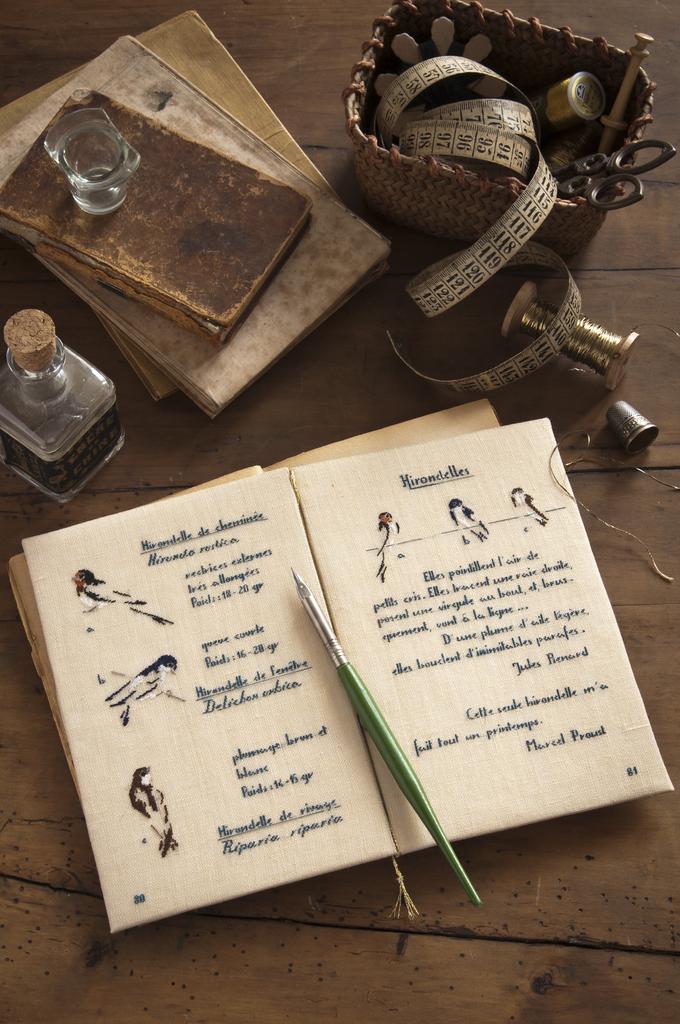 Hirondelle de cheminée
Hirundo rustica
rectrices externes
très allongées
Poids : 18-20 gr
a
queue courte
Poids : 16-20 gr
b
Hirondelle de fenêtre
Delichon urbica
plumage brun et
blanc
Poids : 14-15 gr
c
Hirondelle de rivage
Riparia riparia
80
Hirondelles
a
b
c
Elles pointillent l'air de
petits cris. Elles tracent une raie droite,
posent une virgule au bout, et, brus-
quement, vont à la ligne ...
D'une plume d'aile légère,
elles bouclent d'inimitables parafes.
Jules Renard
Cette seule hirondelle m'a
fait tout un printemps.
Marcel Proust
81
ENCRE
CHINE
115
116
117
118
119
120
121
122